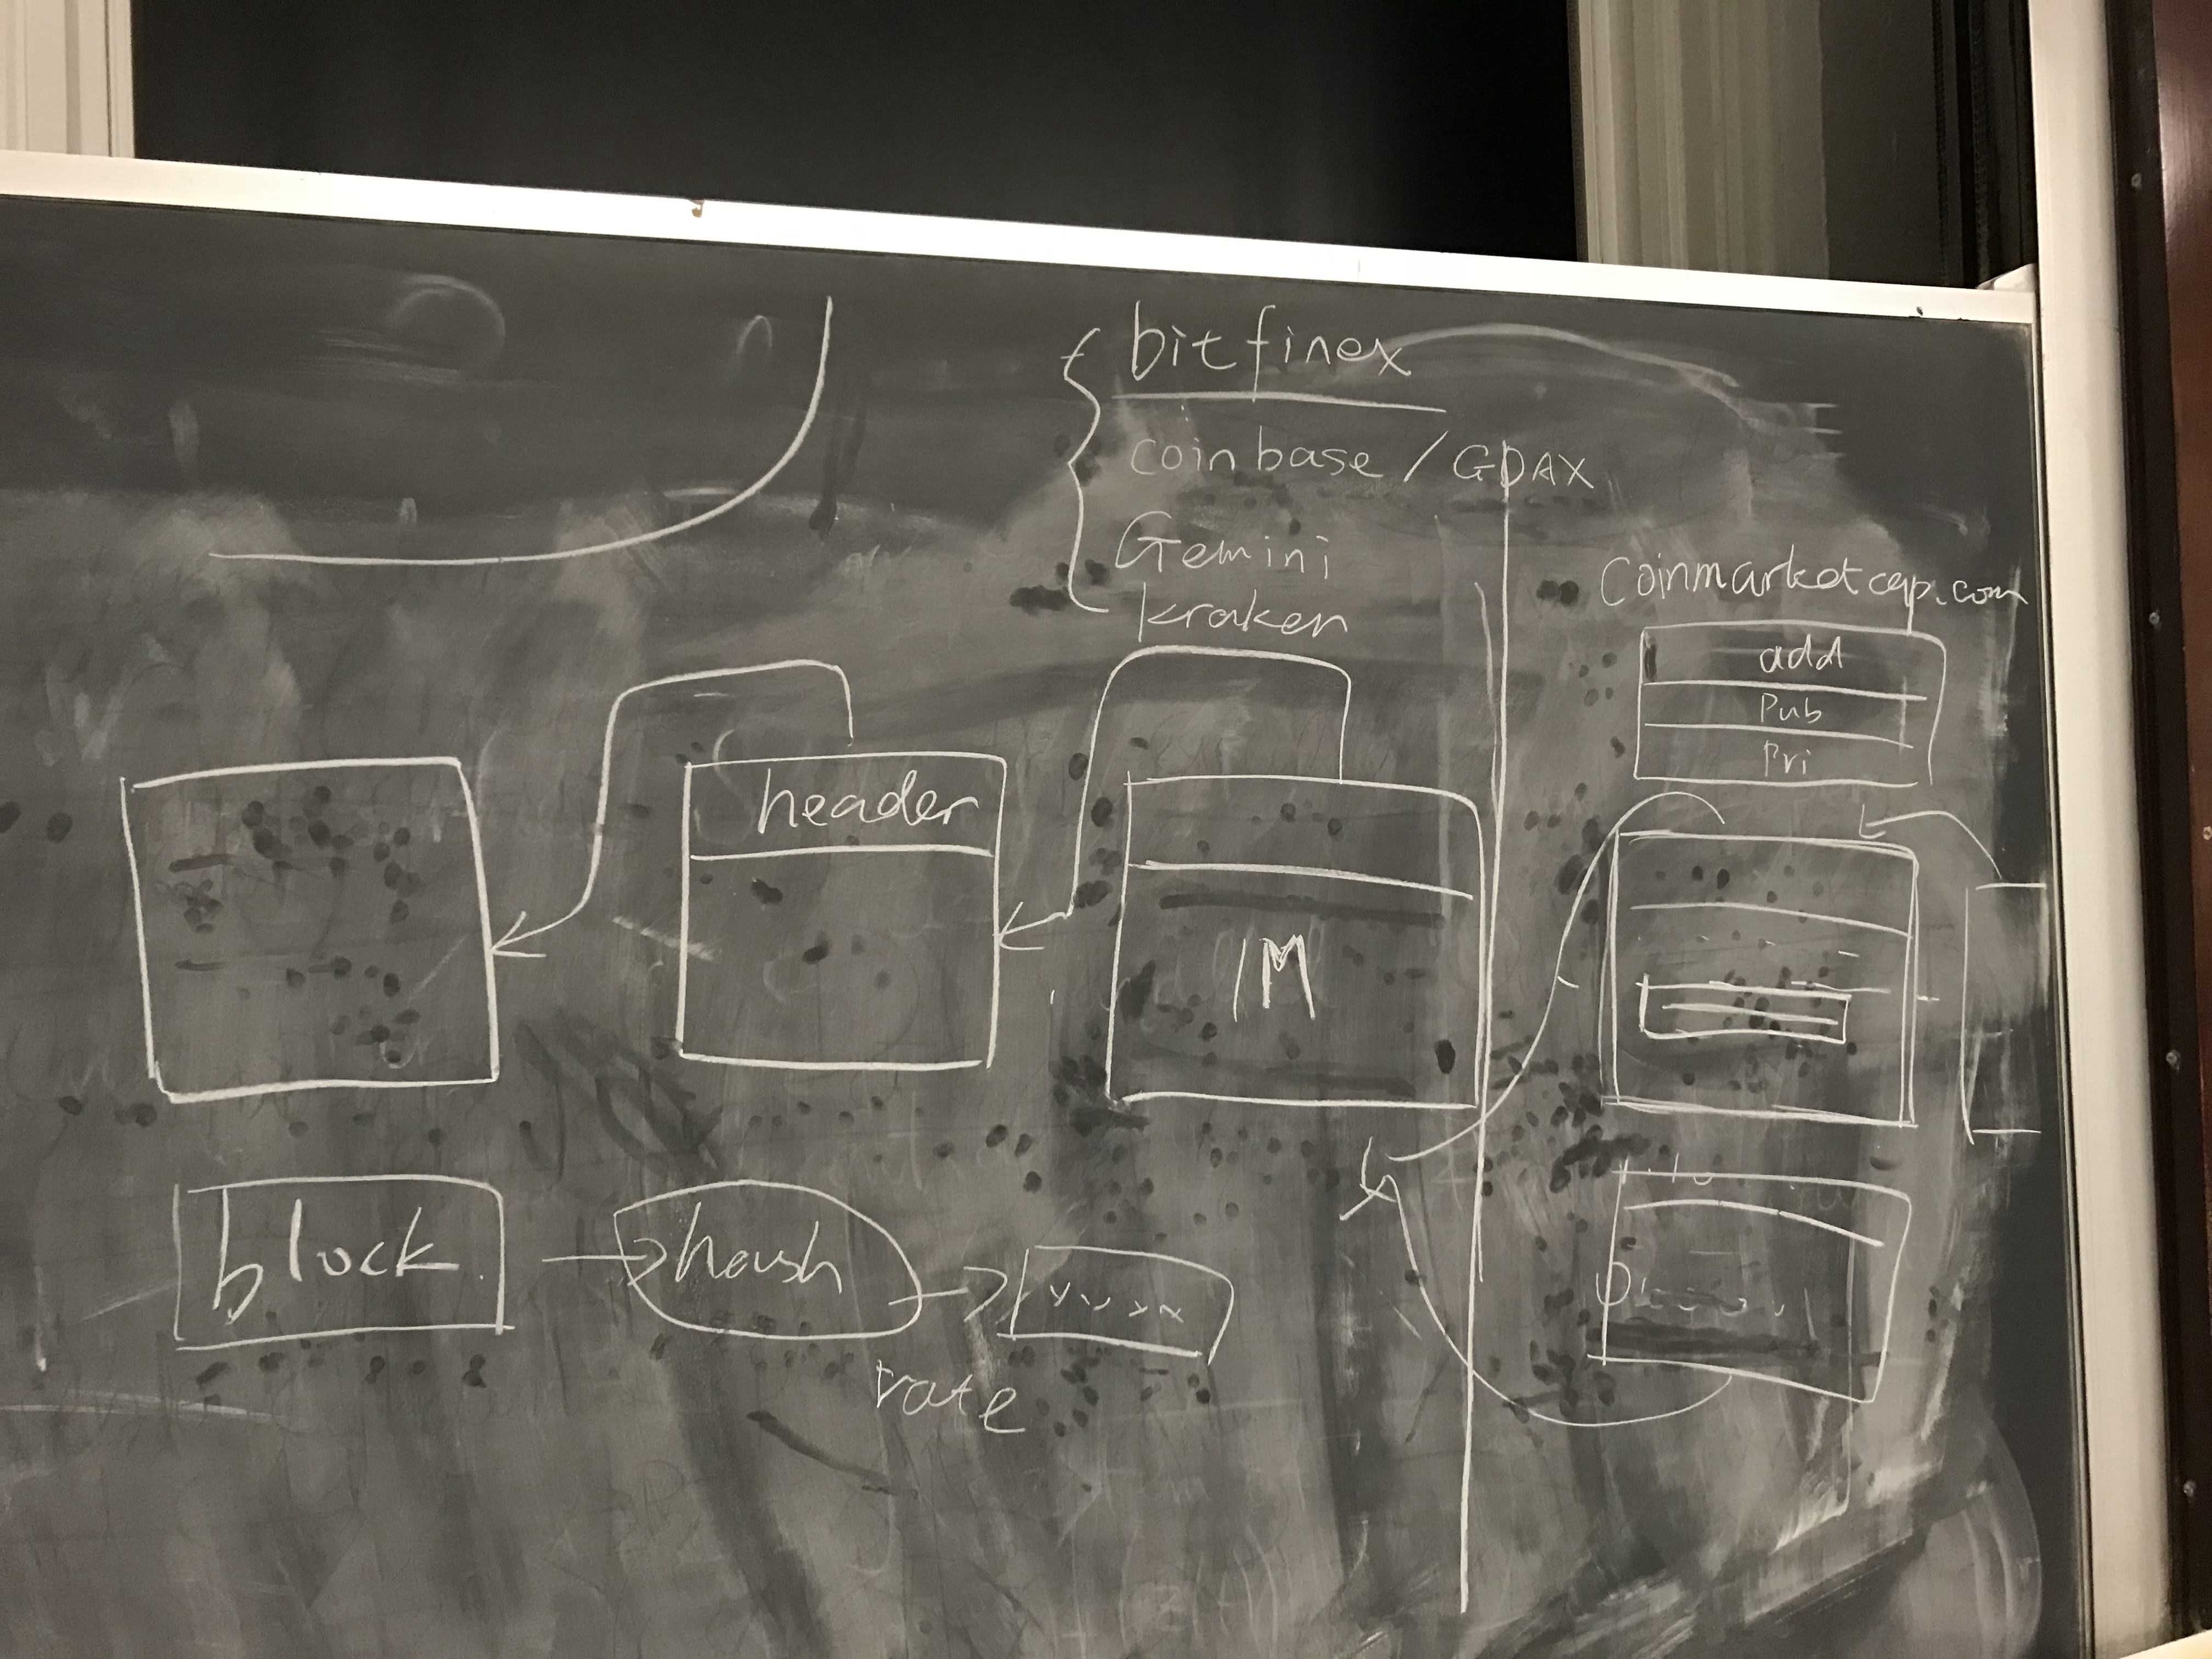 bitfinex
coinbase / GDAX
Gemini
kraken
Coinmarketcap.com
add
Pub
Pri
header
M
block
hash
rate